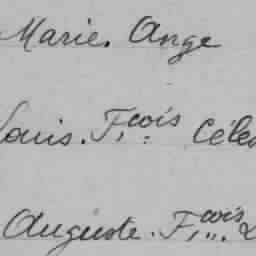 Marie. Ange
Louis. F.çois Céles
Auguste. F.çois